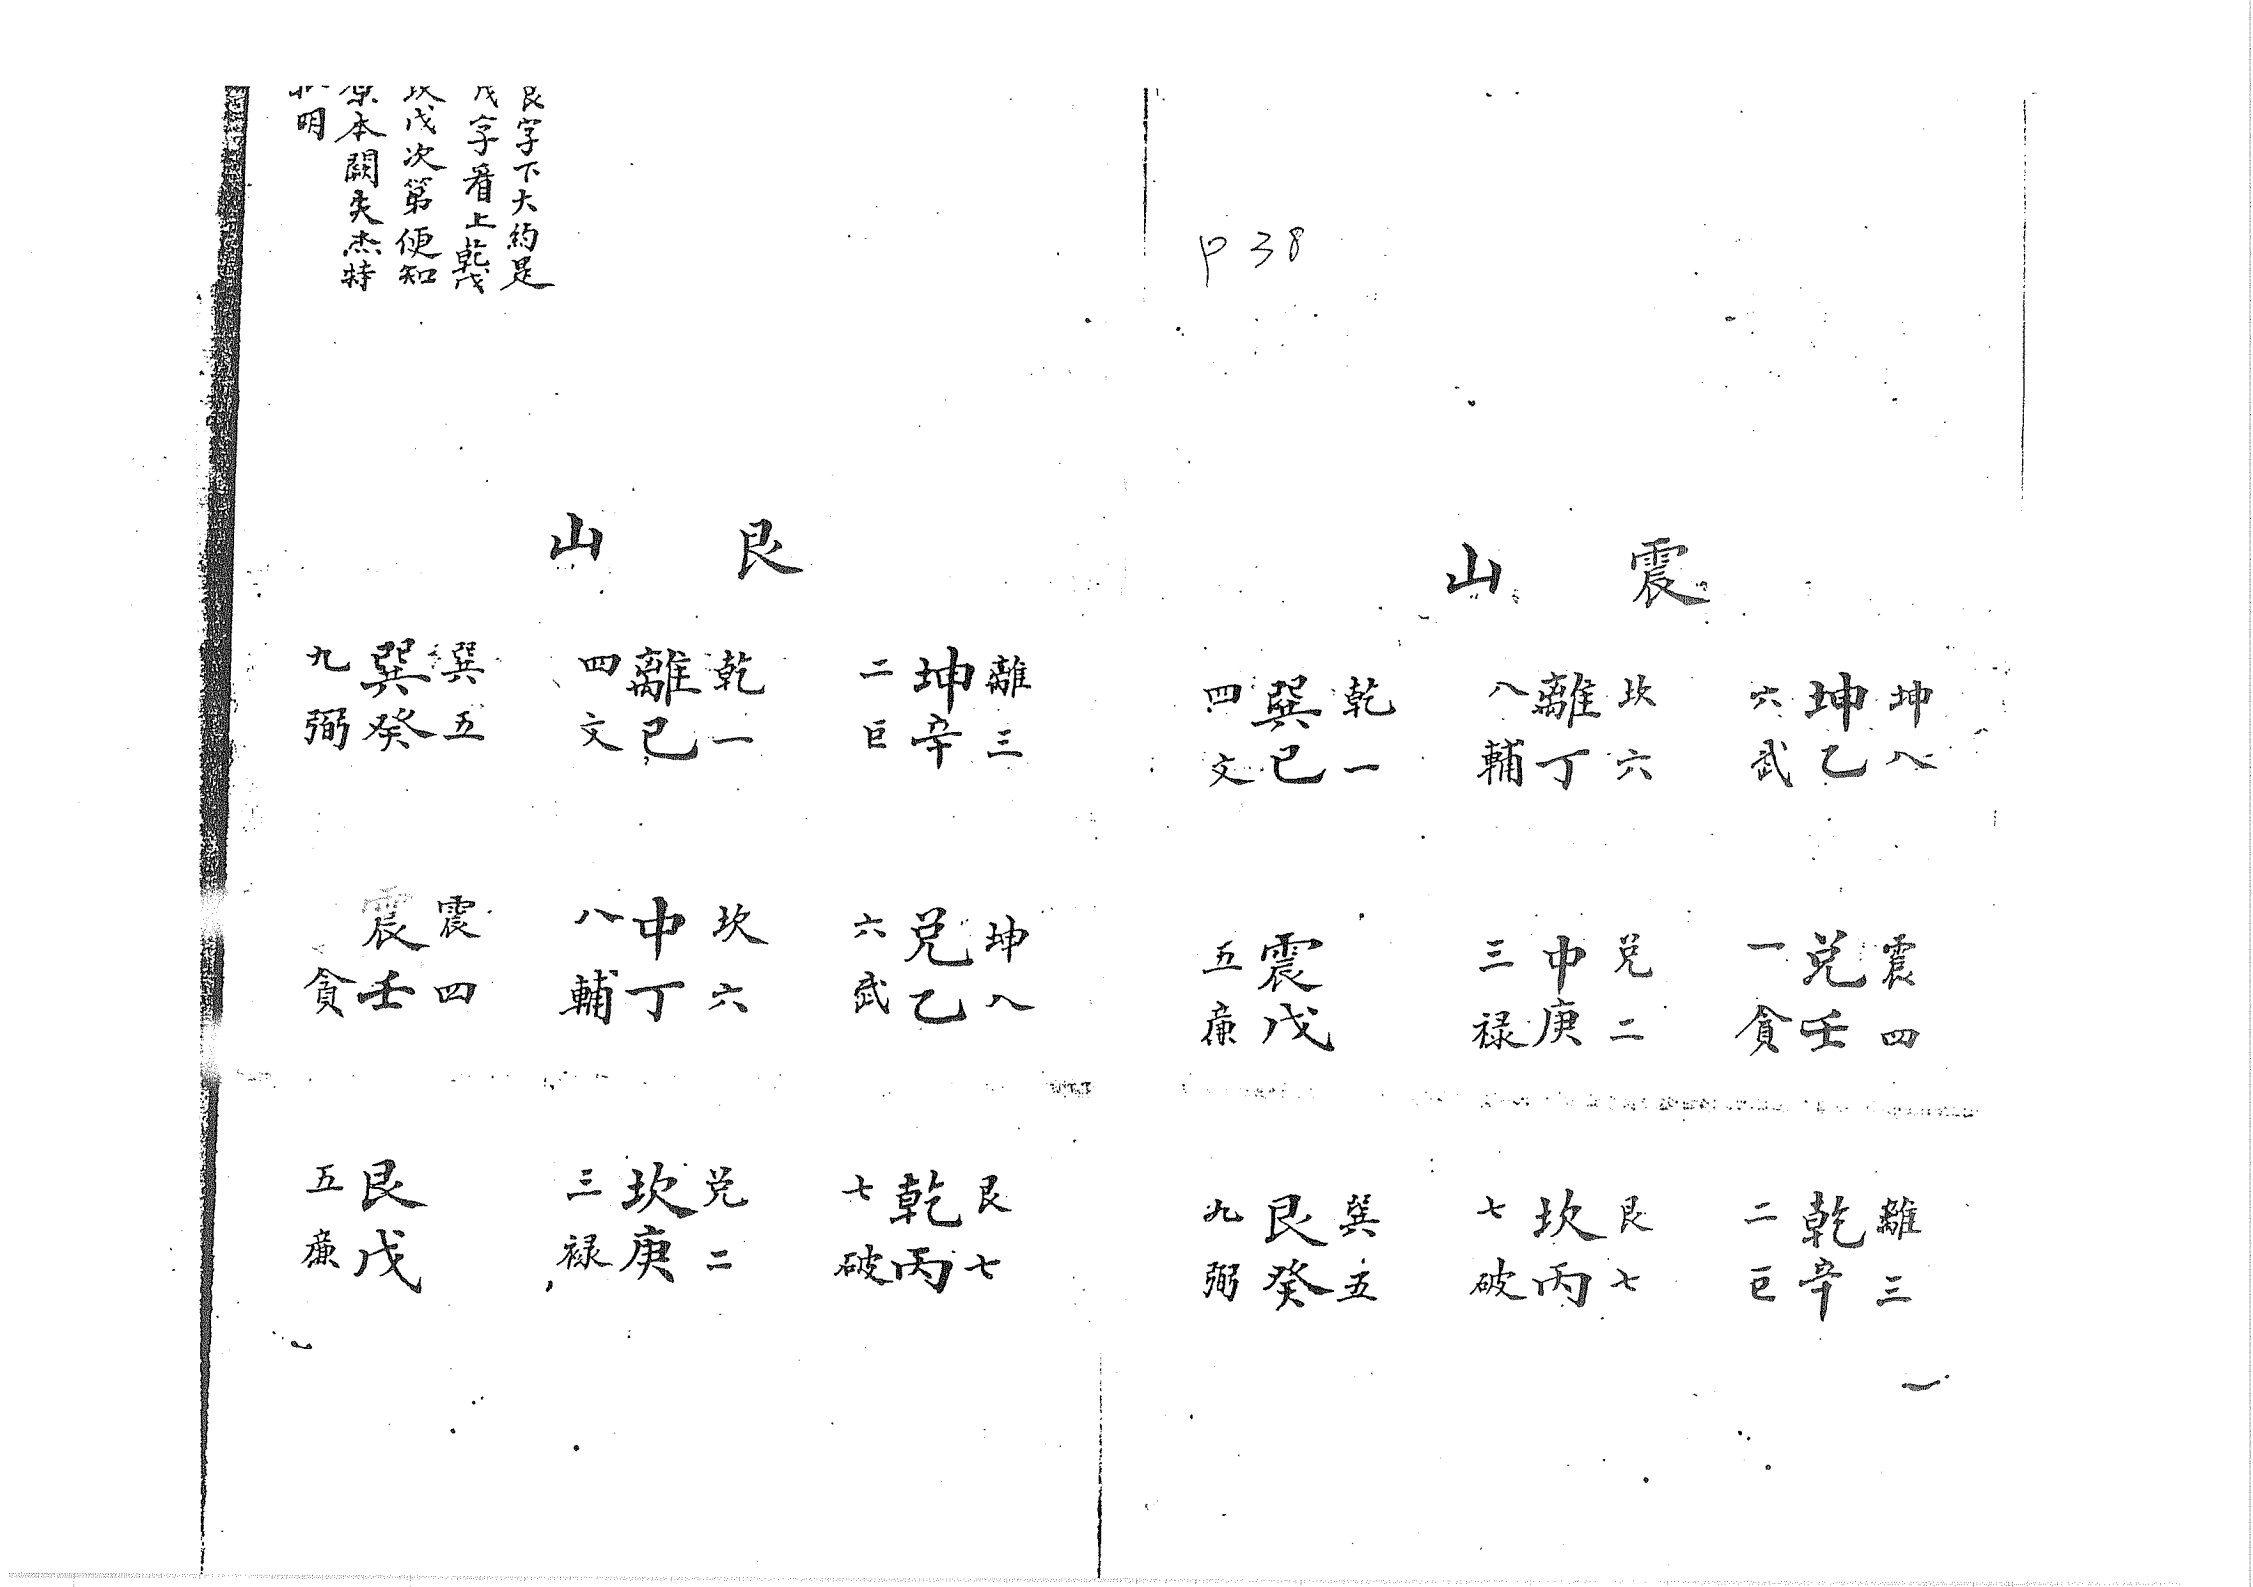 P38
震山
坤八
坤乙
六武
坎六
離丁
八輔
乾一
巽己
四文
震四
兌壬
一貪
兌二
中庚
三禄
震戊
五廉
離三
乾辛
二巨
艮七
坎丙
七破
巽五
艮癸
九弼
艮字下大約是
戊字看上乾戊
坎戊次第便知
原本闕失杰特
明
艮山
離三
坤辛
二巨
乾一
離己
四文
巽五
巽癸
九弼
坤八
兌乙
六武
坎六
中丁
八輔
震四
震壬
貪
艮七
乾丙
七破
兌二
坎庚
三禄
艮戊
五廉